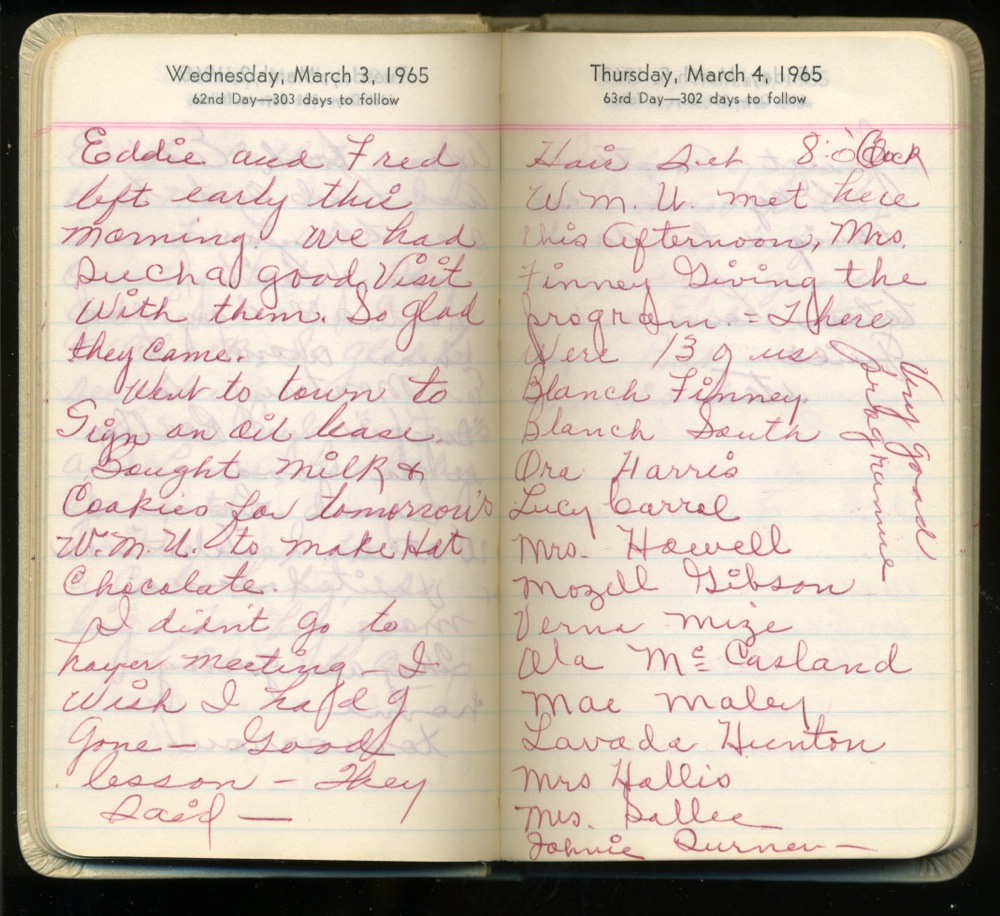 Wednesday, March 3, 1965
62nd Day—303 days to follow
Eddie and Fred
left early this
morning. We had
such a good Visit
With them. So glad
they came.
Went to town to
Sign an oil lease.
Bought milk &
Cookies for tomorrow's
W.M.U. to make Hot
Chocolate.
I didn't go to
prayer meeting - I
Wish I had
Gone — Good
lesson - They
Said —
Thursday, March 4, 1965
63rd Day—302 days to follow
Hair Set 8:00
W.M.U. met here
this Afternoon, Mrs.
Finney Giving the
program. = There
Were 13 of us
Blanch Finney
Blanch South
Ora Harris
Lucy Carrol
Mrs. Howell
Mozell Gibson
Verna Mize
Ola McCasland
Mae Maley
Lavada Hunton
Mrs Hollis
Mrs. Sallee
Johnie Turner —
Very good
programme